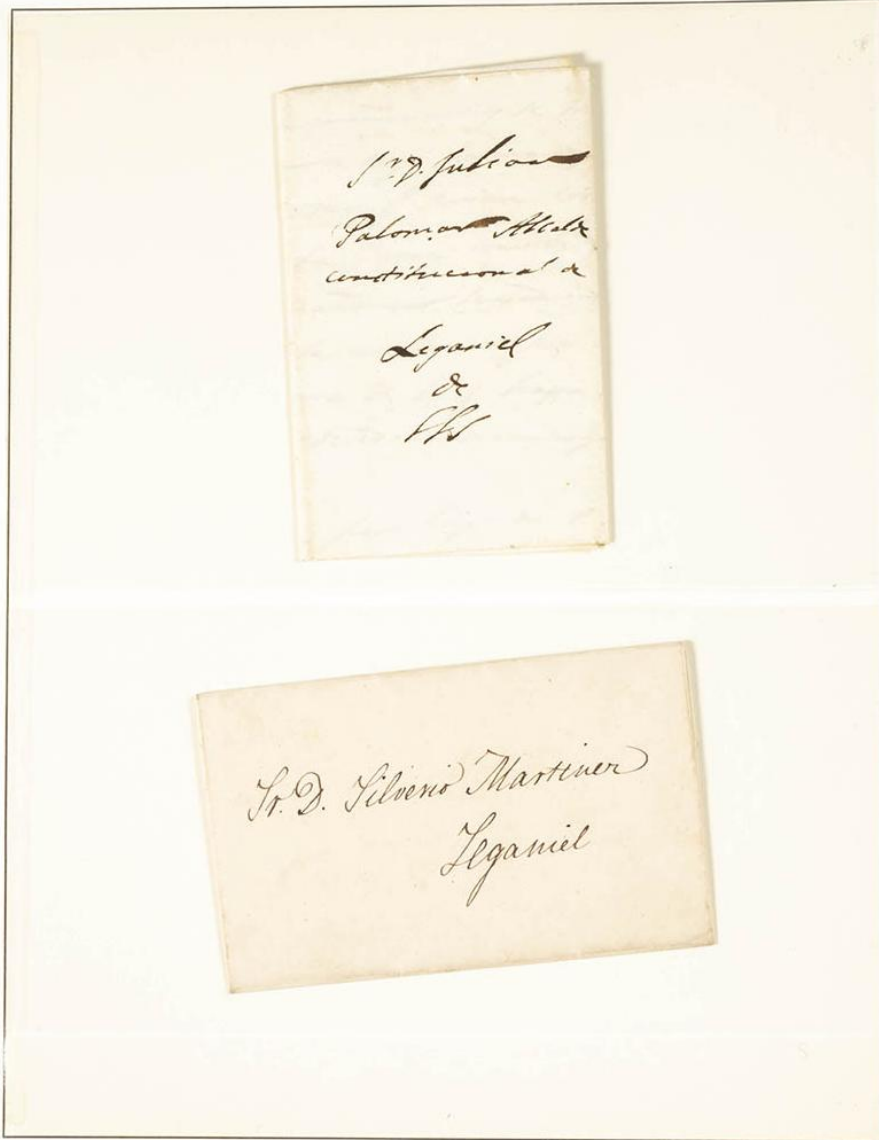 Sr. D. Julian
Palomar Alcalde
constitucional de
Leganiel
de
Sr. D. Silverio Martinez
Leganiel